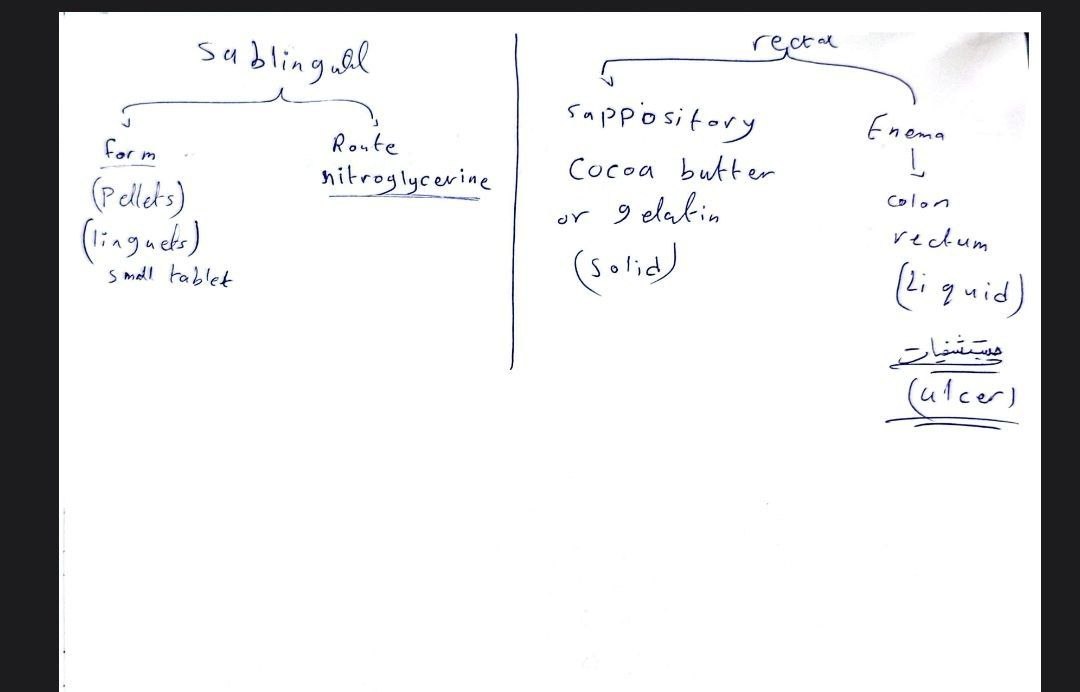 Sublingual
form
(Pellets)
(linguets)
small tablet
Route
nitroglycerine
rectal
Suppository
Cocoa butter
or gelatin
(solid)
Enema
colon
rectum
(Liquid)
مستشفيات
(ulcer)